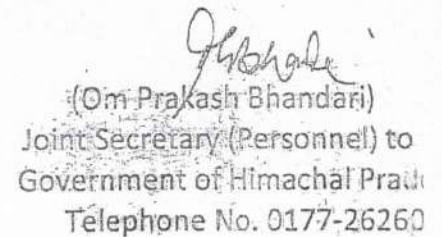 (Om Prakash Bhandari)
Joint Secretary (Personnel) to
Government of Himachal Prad
Telephone No. 0177-26260